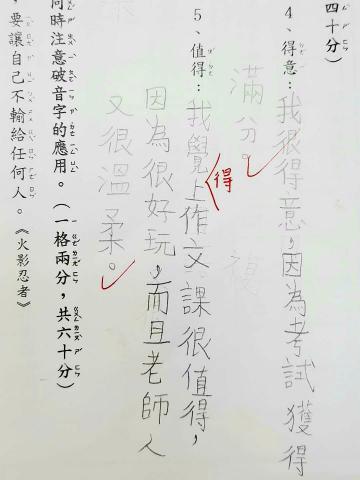 四十分）
4、得意：我很得意，因為考試獲得
滿分。
5、值得：我覺得上作文課很值得，
因為很好玩，而且老師人
又很溫柔。
何時注意破音字的應用。（一格兩分，共六十分）
，要讓自己不輸給任何人。《火影忍者》